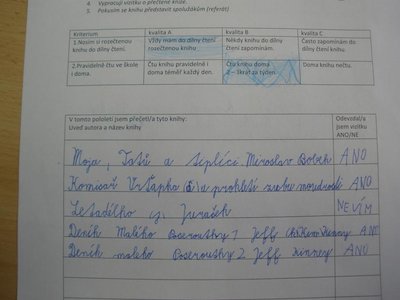 4. Vypracuji vizitku o přečtené knize.
5. Pokusím se knihu představit spolužákům (referát)
Kriterium kvalita A kvalita B kvalita C
1.Nosím si rozečtenou knihu do dílny čtení. Vždy mám do dílny čtení rozečtenou knihu Někdy knihu do dílny čtení zapomínám. Často zapomínám do dílny čtení knihu.
2.Pravidelně čtu ve škole i doma. Čtu knihu pravidelně i doma téměř každý den. Čtu knihu doma 2 – 3krát za týden. Doma knihu nečtu.
V tomto pololetí jsem přečetl/a tyto knihy:
Uveď autora a název knihy
Odevzdal/a jsem vizitku ANO/NE
Moja, Tatů a Miroslav ANO
Komisař Vrťapka a prokletí zubu moudrosti ANO
Letadélko Juráček NEVÍM
Deník Malého Poseroutky 1 Jeff Kinney ANO
Deník malého Poseroutky 2 Jeff Kinney ANO